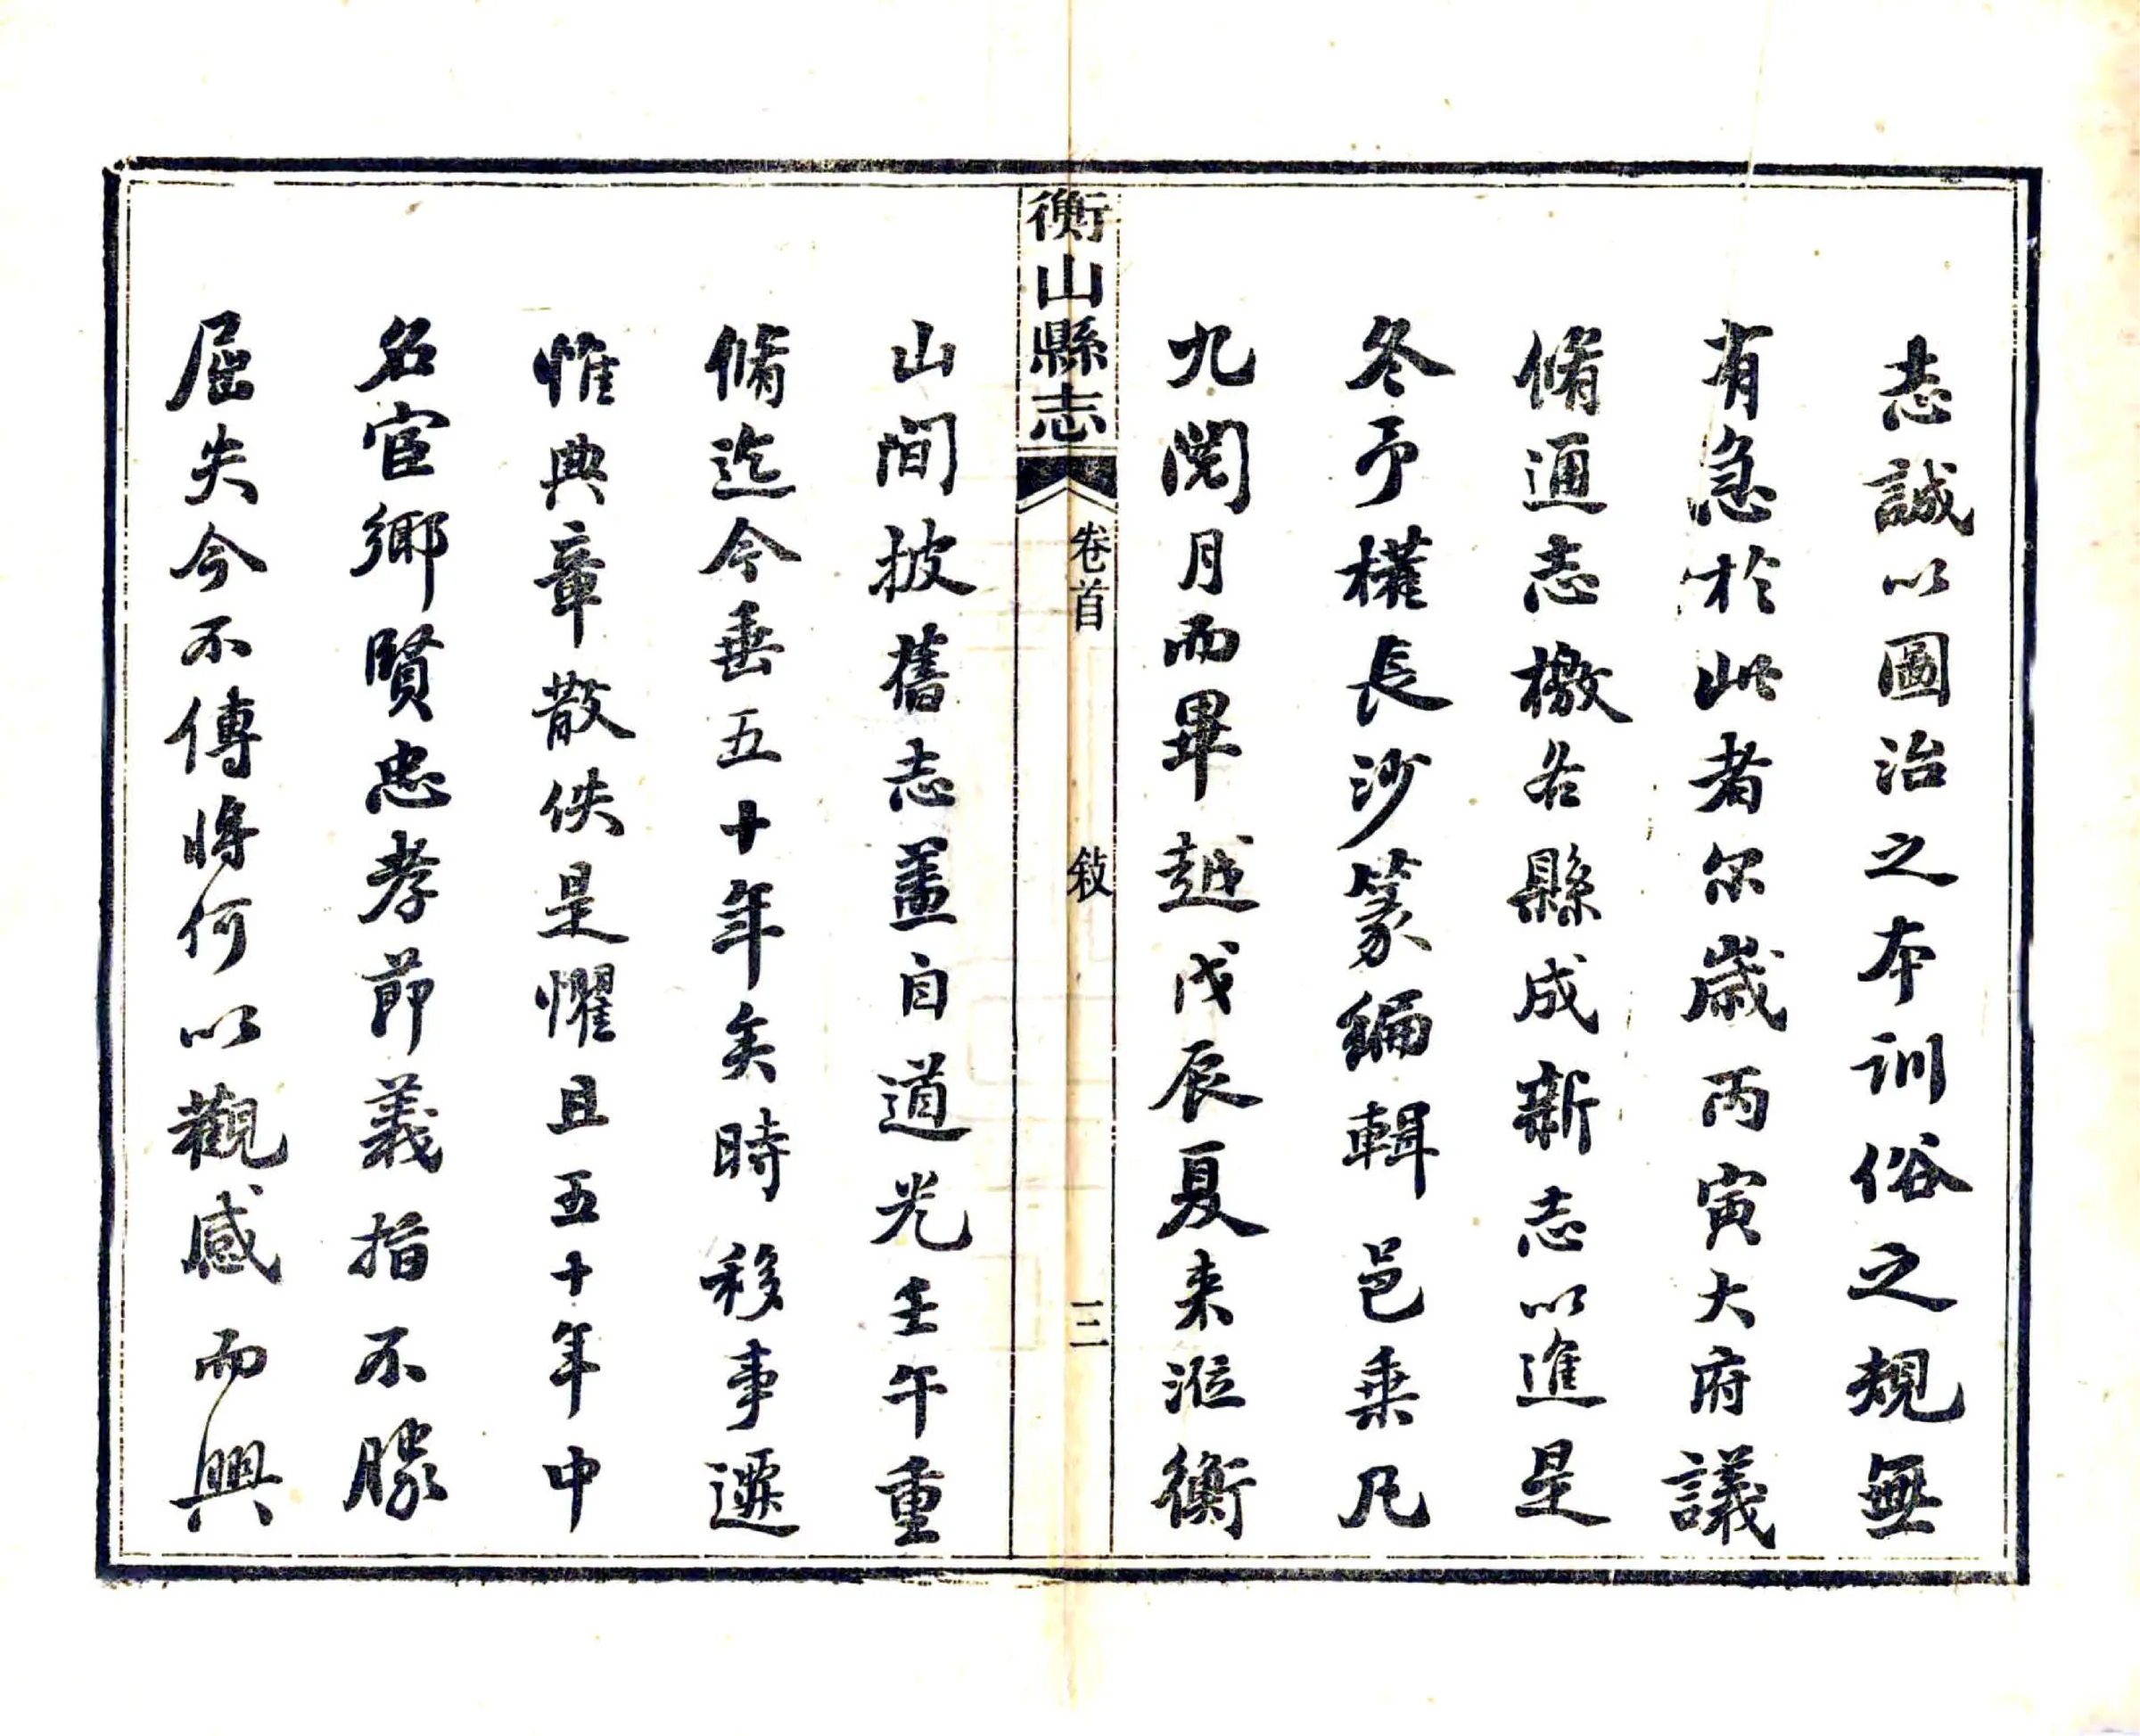 志誠以圖治之本訓俗之規無
有急於此者尔歲丙寅大府議
脩通志檄各縣成新志以進是
冬予權長沙篆編輯邑乘凡
九閱月而畢越戊辰夏来涖衡
衡山縣志 卷首 敍 三
山間披舊志盖自道光壬午重
脩迄今垂五十年矣時移事遷
惟典章散佚是懼且五十年中
名宦鄉賢忠孝節義指不勝
屈失今不傳將何以觀感而興